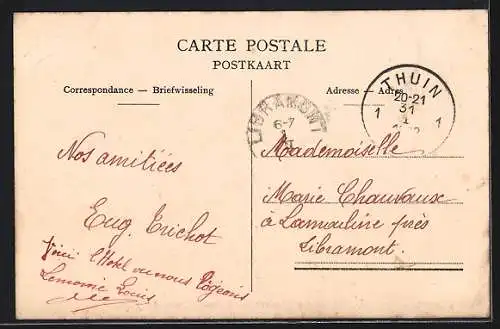 CARTE POSTALE
POSTKAART
Correspondance — Briefwisseling
Adresse — Adres
LIBRAMONT
6-7
THUIN
20-21
31
1 1
Nos amitiées
Eug. Trichot
l'Hotel ou nous logeons
Lemoine Louis
Mademoiselle
Marie Chauvaux
à Lamouline près
Libramont